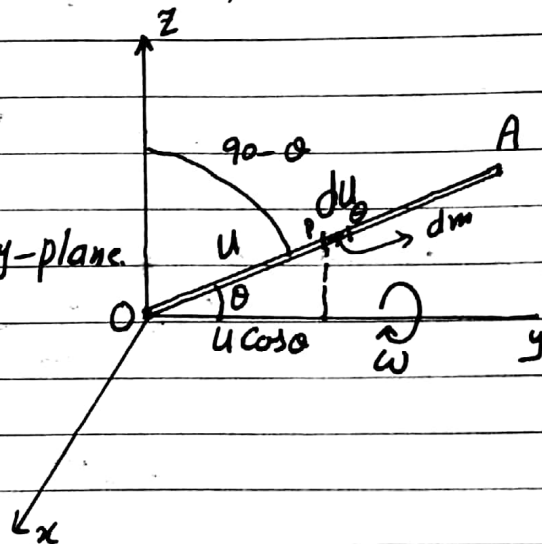 z
90-θ
A
du
P Q
dm
y-plane.
u
θ
O
u cosθ
y
ω
x